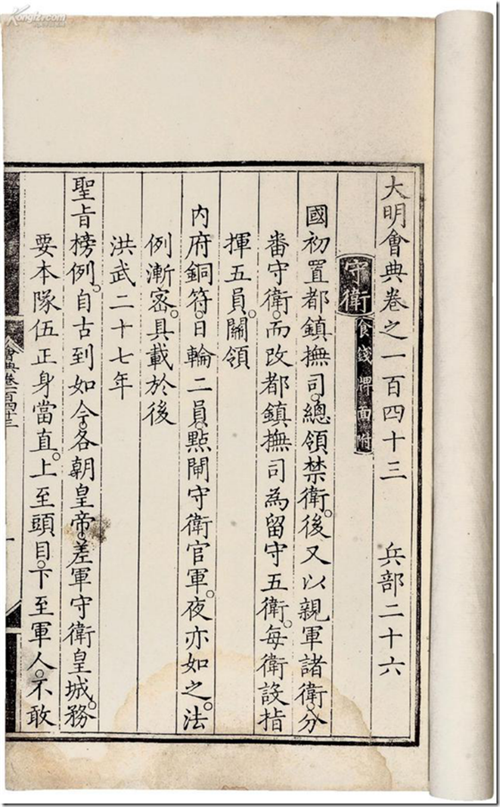 大明會典卷之一百四十三 兵部二十六
守衛 食錢 懸面附
國初置都鎮撫司。總領禁衛。後又以親軍諸衛。分
番守衛。而改都鎮撫司為留守五衛。每衛設指
揮五員。關領
內府銅符。日輪二員。點閘守衛官軍。夜亦如之。法
例漸密。具載於後
洪武二十七年
聖旨榜例。自古到如今。各朝皇帝。差軍守衛皇城。務
要本隊伍正身當直。上至頭目。下至軍人。不敢
會典卷一百四十三